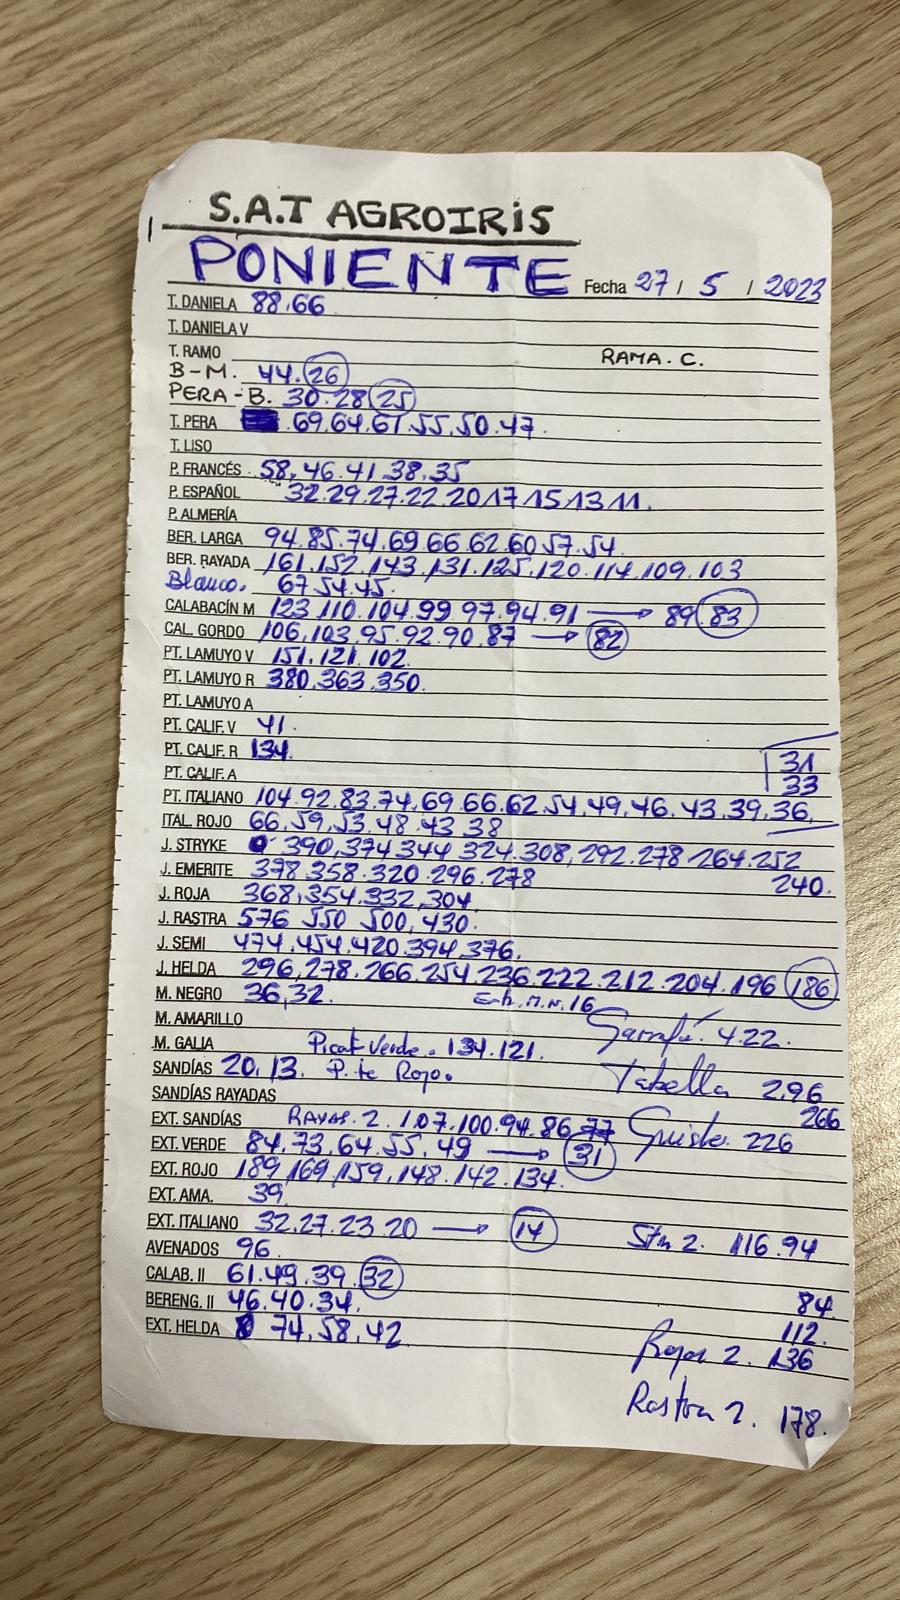 S.A.T AGROIRIS
PONIENTE Fecha 27 / 5 / 2023
T. DANIELA 88.66
T. DANIELA V
T. RAMO RAMA. C.
B-M. 44. 26
PERA-B. 30.28 25
T. PERA .69.64.61.55.50.47
T. LISO
P. FRANCÉS 58.46.41.38.35
P. ESPAÑOL 32.29.27.22.20.17.15.13.11.
P. ALMERÍA
BER. LARGA 94.85.74.69.66.62.60.57.54.
BER. RAYADA 161.152.143.131.125.120.114.109.103
Blanco. 67.54.45.
CALABACÍN M 123.110.104.99.97.94.91 → 89.83
CAL. GORDO 106.103.95.92.90.87 → 82
PT. LAMUYO V 151.121.102.
PT. LAMUYO R 380.363.350.
PT. LAMUYO A
PT. CALIF. V 41.
PT. CALIF. R 134. 31
PT. CALIF. A 33
PT. ITALIANO 104.92.83.74.69.66.62.54.49.46.43.39.36.
ITAL. ROJO 66.59.53.48.43.38
J. STRYKE 390.374.344.324.308.292.278.264.252
J. EMERITE 378.358.320.296.278 240.
J. ROJA 368.354.332.304.
J. RASTRA 576 550 500.430.
J. SEMI 474.454.420.394.376.
J. HELDA 296.278.266.254.236.222.212.204.196 186
M. NEGRO 36.32. Ext. M.N. 16
M. AMARILLO Garrafá. 4.22.
M. GALIA Picat Verde. 134.121.
SANDÍAS 20.13. P. te Rojo. Tabella 2.96
SANDÍAS RAYADAS 266
EXT. SANDÍAS RAYAS. 2. 107.100.94.86.77 Guiste. 226
EXT. VERDE 84.73.64.55.49 → 31
EXT. ROJO 189.169.159.148.142.134.
EXT. AMA. 39
EXT. ITALIANO 32.27.23.20 → 14 Stn 2. 116.94
AVENADOS 96.
CALAB. II 61.49.39.32 84.
BERENG. II 46.40.34. 112.
EXT. HELDA 74.58.42 Rojas 2. 136
Rastra 2. 178.